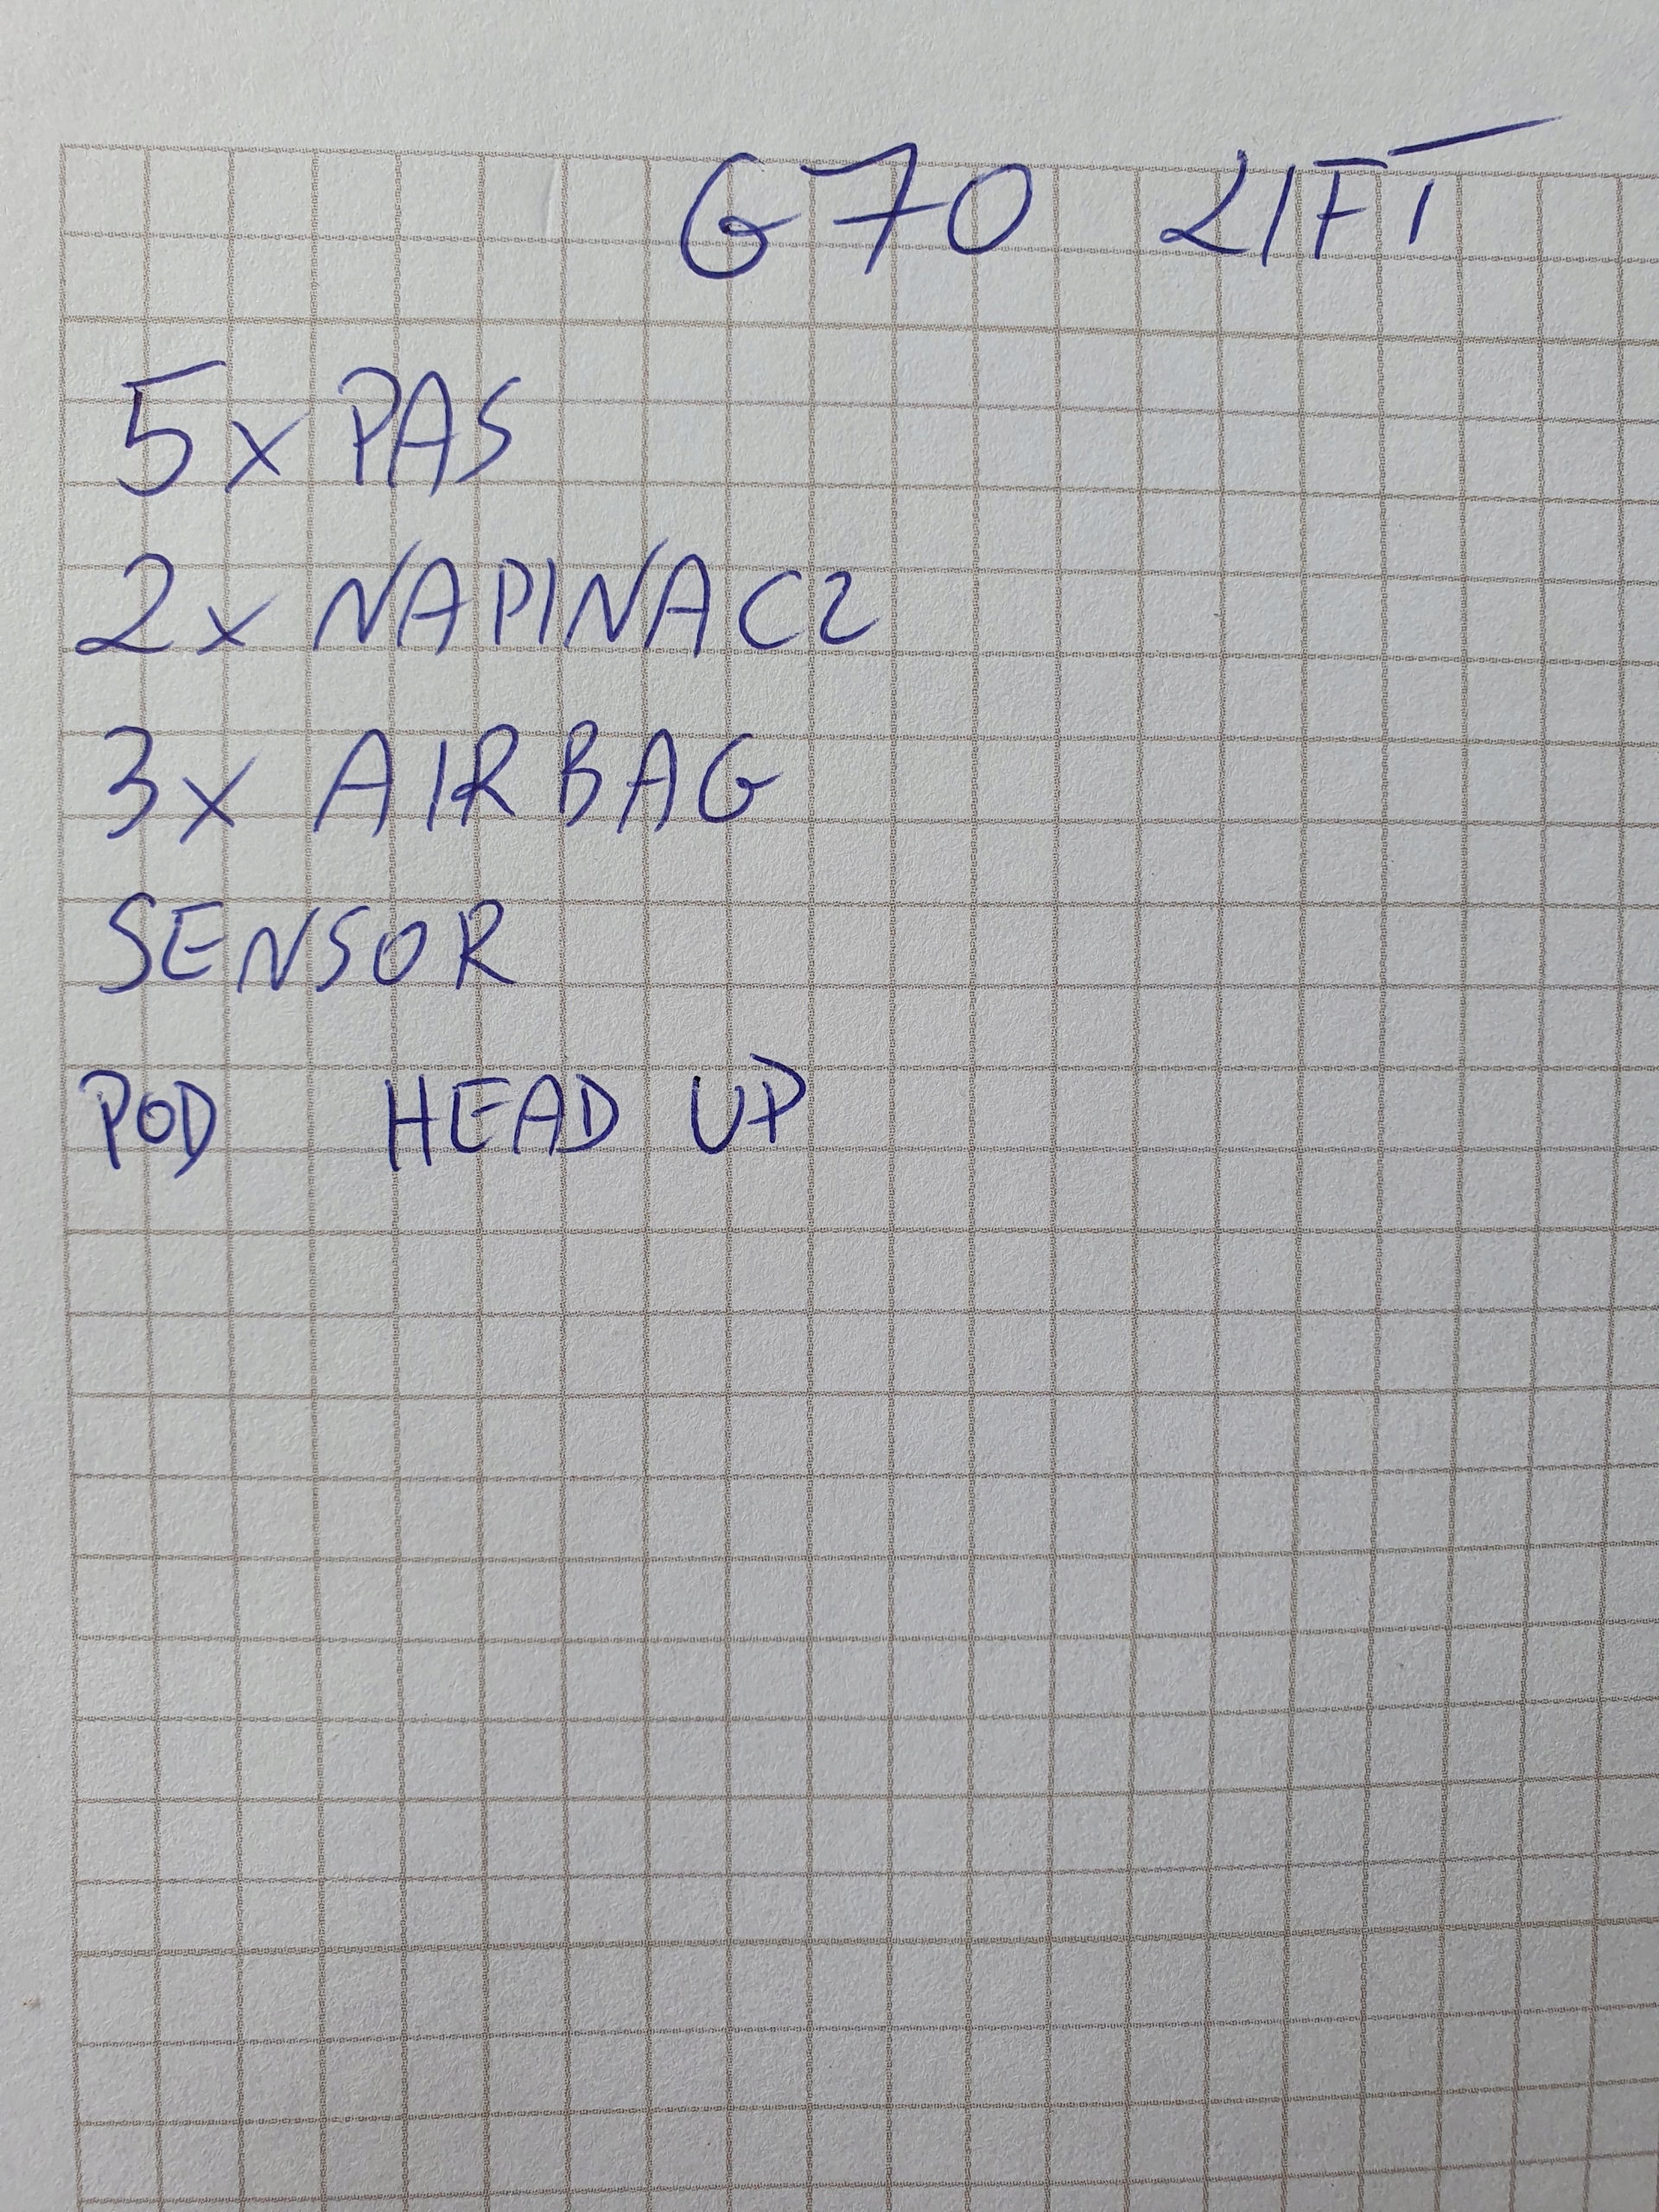 G70 LIFT
5x PAS
2x NAPINACZ
3x AIRBAG
SENSOR
POD HEAD UP